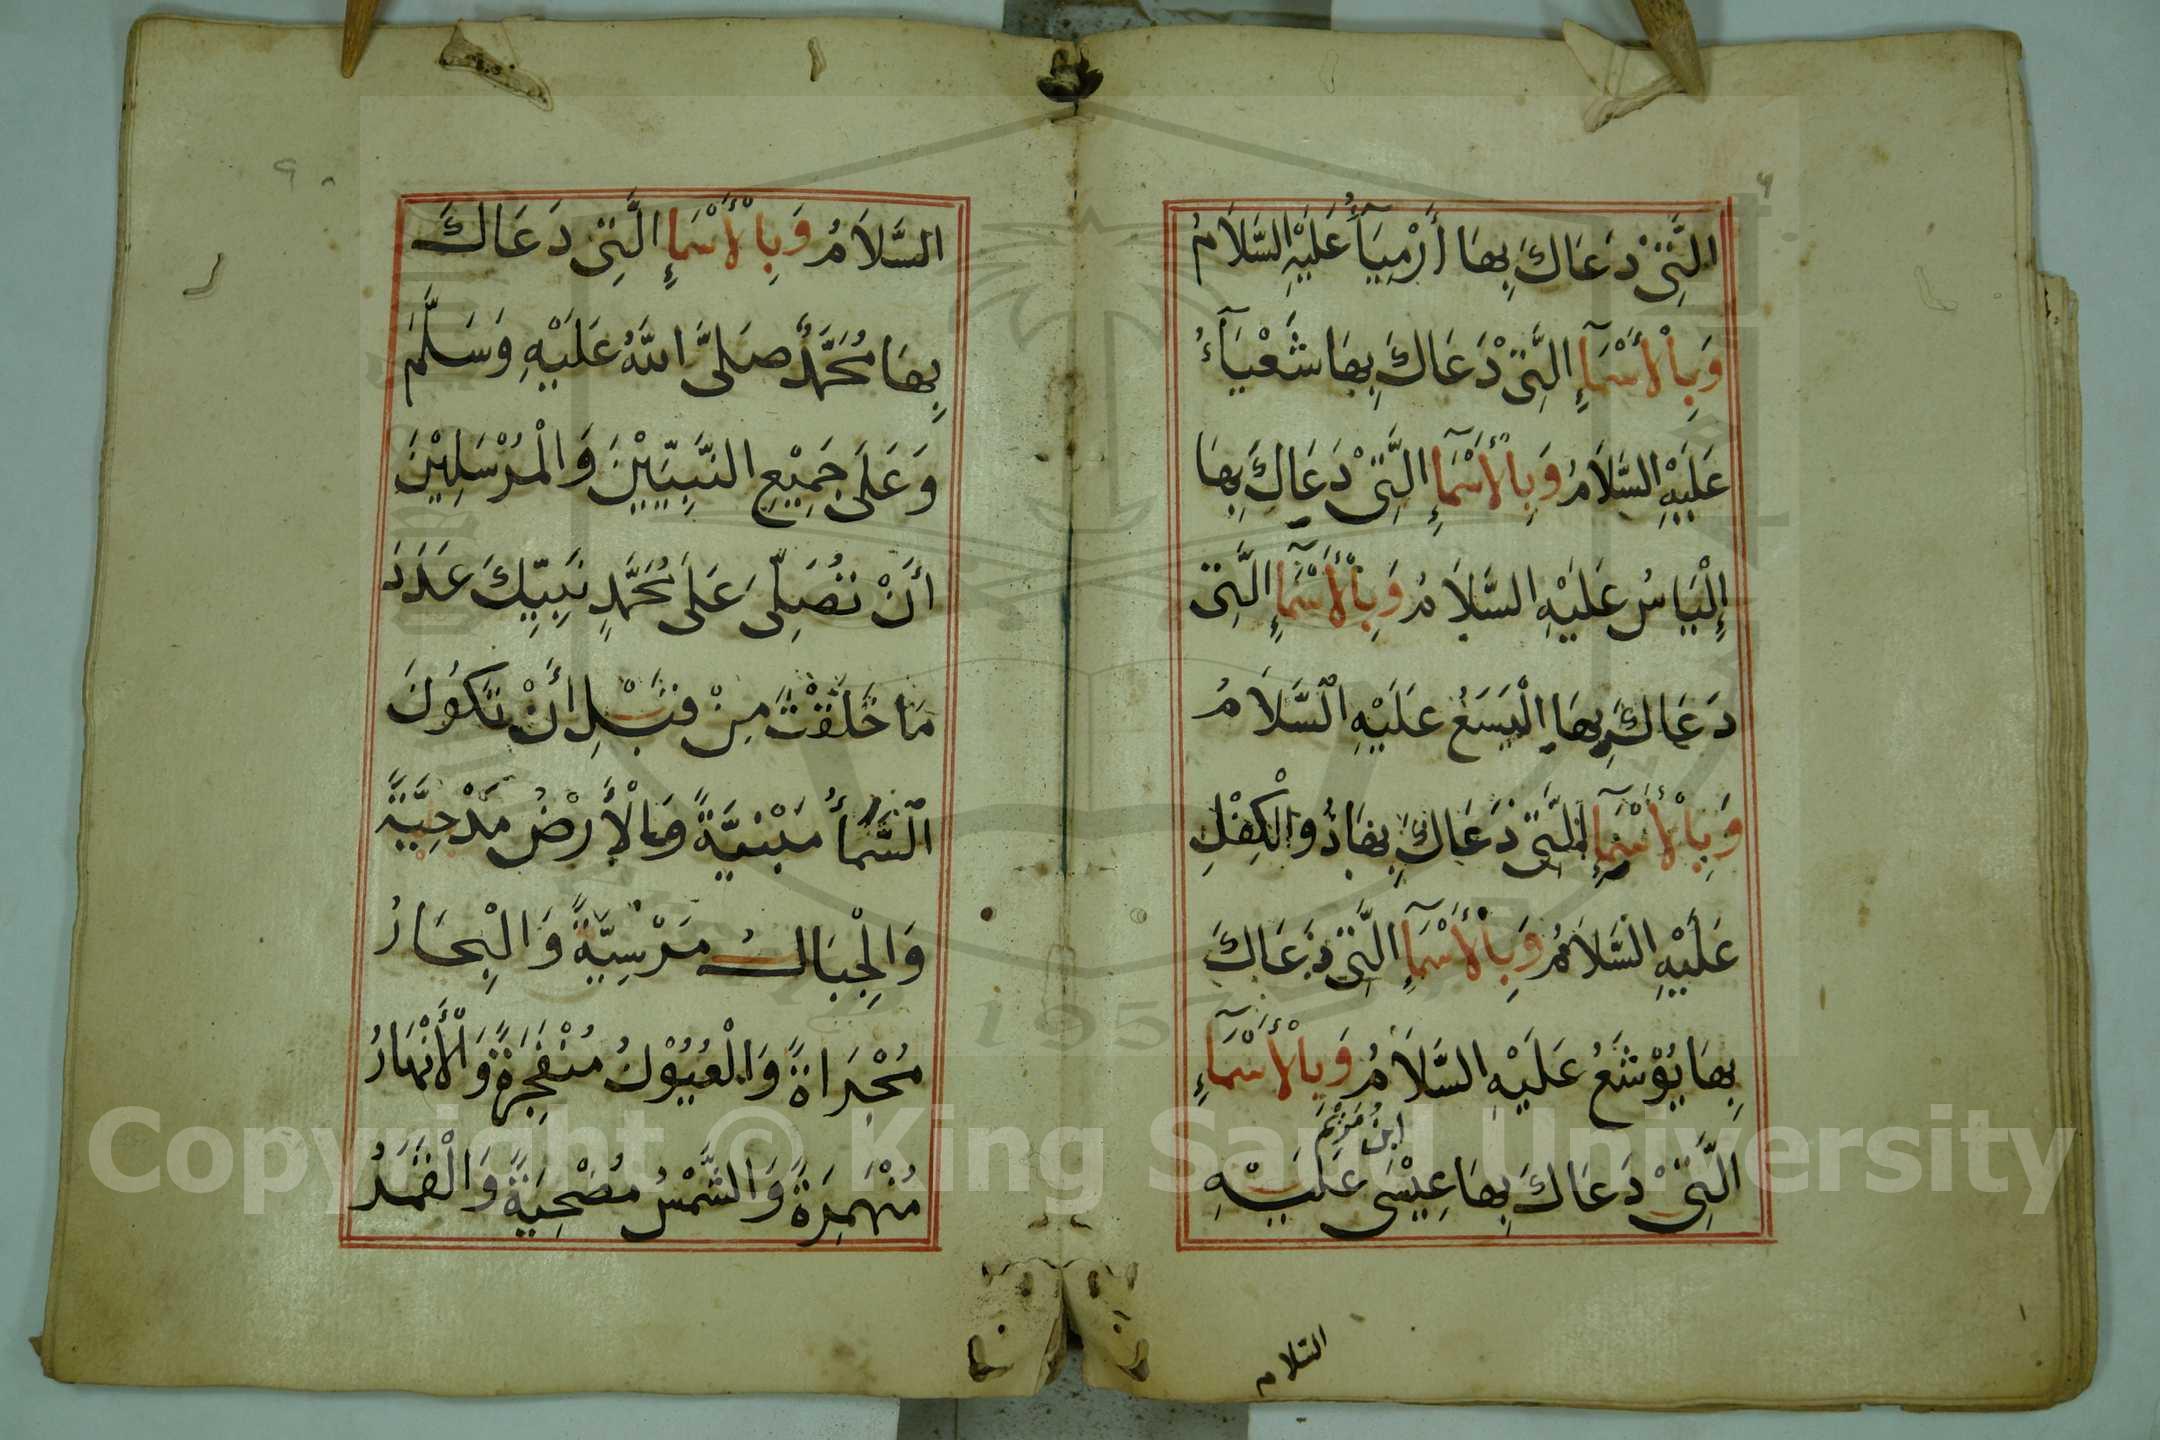 الَّتِيْ دَعَاكَ بِهَا أَرْمِيَآءُ عَلَيْهِ السَّلَامُ
وَبِاْلأَسْمَآءِ الَّتِيْ دَعَاكَ بِهَا شَعْيَآءُ
عَلَيْهِ السَّلَامُ وَبِاْلأَسْمَآءِ الَّتِيْ دَعَاكَ بِهَا
إِلْيَاسُ عَلَيْهِ السَّلَامُ وَبِاْلأَسْمَآءِ الَّتِيْ
دَعَاكَ بِهَا الْيَسَعُ عَلَيْهِ السَّلَامُ
وَبِاْلأَسْمَآءِ الَّتِيْ دَعَاكَ بِهَا ذُو الْكِفْلِ
عَلَيْهِ السَّلَامُ وَبِاْلأَسْمَآءِ الَّتِيْ دَعَاكَ
بِهَا يُوْشَعُ عَلَيْهِ السَّلَامُ وَبِاْلأَسْمَآءِ
ابْنُ مَرْيَمَ
الَّتِيْ دَعَاكَ بِهَا عِيْسَى عَلَيْهِ
السلام
السَّلَامُ وَبِاْلأَسْمَاءِ الَّتِيْ دَعَاكَ
بِهَا مُحَمَّدٌ صَلَّى اللهُ عَلَيْهِ وَسَلَّمَ
وَعَلَى جَمِيْعِ النَّبِيِّيْنَ وَالْمُرْسَلِيْنَ
أَنْ تُصَلِّيَ عَلَى مُحَمَّدٍ نَبِيِّكَ عَدَدَ
مَا خَلَقْتَ مِنْ قَبْلِ أَنْ تَكُوْنَ
السَّمَاءُ مَبْنِيَّةً وَالْأَرْضُ مَدْحِيَّةً
وَالْجِبَالُ مَرْسِيَّةً وَالْبِحَارُ
مُجْرَاةً وَالْعُيُوْنُ مُنْفَجِرَةً وَالْأَنْهَارُ
مُنْهَمِرَةً وَالشَّمْسُ مُضْحِيَةً وَالْقَمَرُ
Copyright © King Saud University
1957